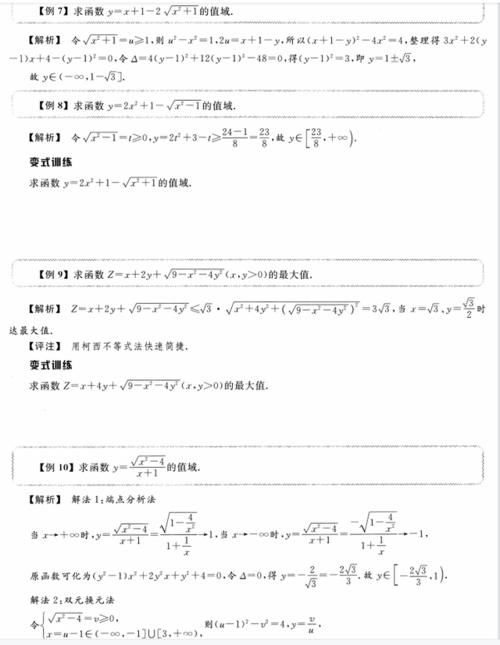 【例 7】求函数 y=x+1-2√(x²+1)的值域.
【解析】 令√(x²+1)=u≥1,则 u²-x²=1,2u=x+1-y,所以(x+1-y)²-4x²=4,整理得 3x²+2(y
-1)x+4-(y-1)²=0,令 Δ=4(y-1)²+12(y-1)²-48=0,得(y-1)²=3,即 y=1±√3,
故 y∈(-∞,1-√3].
【例 8】求函数 y=2x²+1-√(x²-1)的值域.
【解析】 令√(x²-1)=t≥0,y=2t²+3-t≥(24-1)/8=23/8,故 y∈[23/8,+∞).
变式训练
求函数 y=2x²+1-√(x²+1)的值域.
【例 9】求函数 Z=x+2y+√(9-x²-4y²)(x,y>0)的最大值.
【解析】 Z=x+2y+√(9-x²-4y²)≤√3·√(x²+4y²+(√(9-x²-4y²))²)=3√3,当 x=√3,y=√3/2时
达最大值.
【评注】 用柯西不等式法快速简捷.
变式训练
求函数 Z=x+4y+√(9-x²-4y²)(x,y>0)的最大值.
【例 10】求函数 y=√(x²-4)/(x+1)的值域.
【解析】 解法 1:端点分析法
当 x→+∞时,y=√(x²-4)/(x+1)=√(1-4/x²)/(1+1/x)→1,当 x→-∞时,y=√(x²-4)/(x+1)=-√(1-4/x²)/(1+1/x)→-1,
原函数可化为(y²-1)x²+2y²x+y²+4=0,令 Δ=0,得 y=-2/√3=-2√3/3.故 y∈[-2√3/3,1).
解法 2:双元换元法
令{√(x²-4)=v≥0, x=u-1∈(-∞,-1]∪[3,+∞), 则(u-1)²-v²=4,y=v/u,